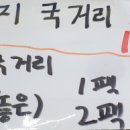 지 국거리
국거리 1팩
좋은) 2팩